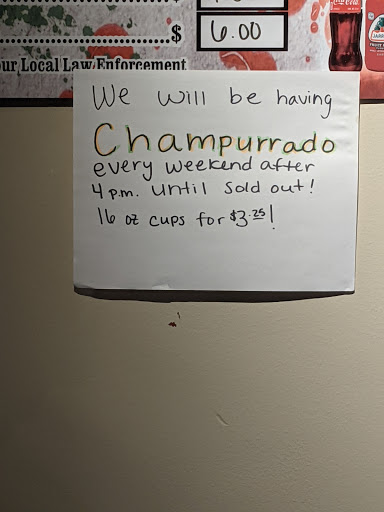 $ 6.00
our Local Law Enforcement
Coca-Cola
We will be having
Champurrado
every weekend after
4 p.m. until sold out!
16 oz cups for $3.25!